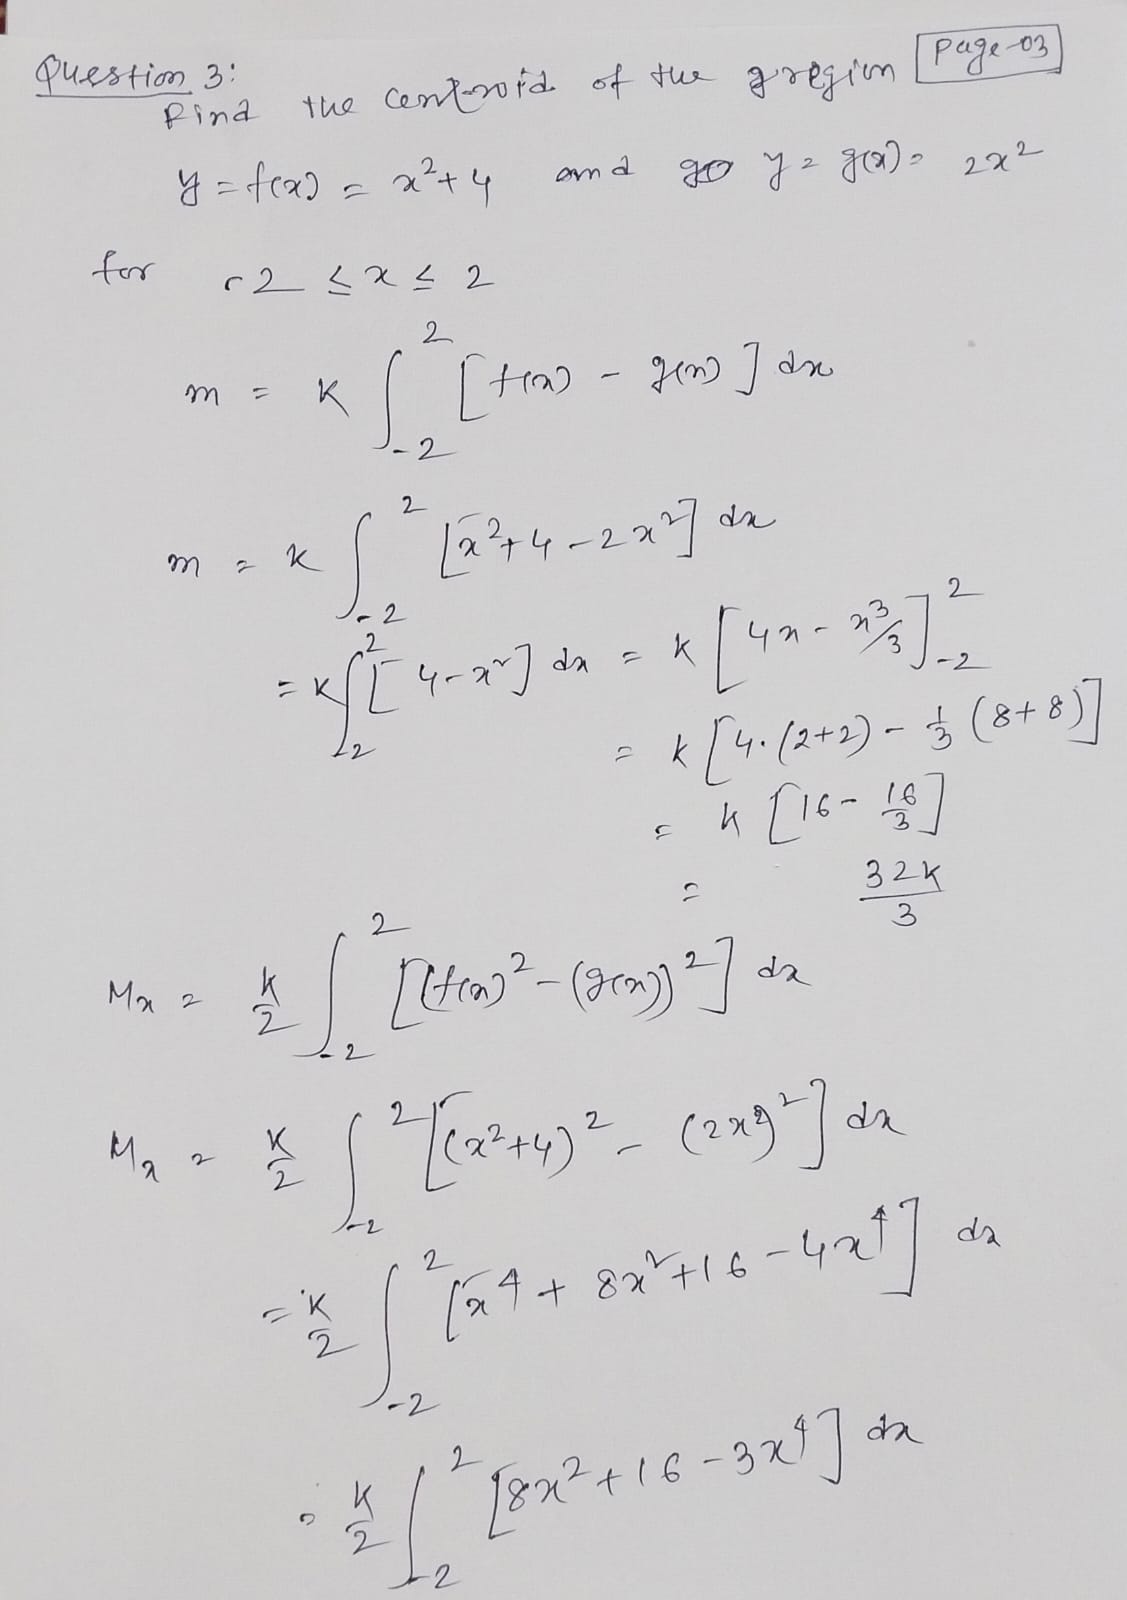 Question 3: Page-03
Find the centroid of the region
y = f(x) = x²+4 and y = g(x) = 2x²
for -2 ≤ x ≤ 2
m = K ∫_{-2}^{2} [f(x) - g(x)] dx
m = K ∫_{-2}^{2} [x²+4-2x²] dx
= K ∫_{-2}^{2} [4-x²] dx = K [4x - x³/3]_{-2}^{2}
= K [4.(2+2) - 1/3 (8+8)]
= K [16 - 16/3]
= 32K/3
Mx = K/2 ∫_{-2}^{2} [(f(x)² - (g(x))²] dx
Mx = K/2 ∫_{-2}^{2} [(x²+4)² - (2x²)²] dx
= K/2 ∫_{-2}^{2} [x⁴ + 8x² + 16 - 4x⁴] dx
= K/2 ∫_{-2}^{2} [8x² + 16 - 3x⁴] dx